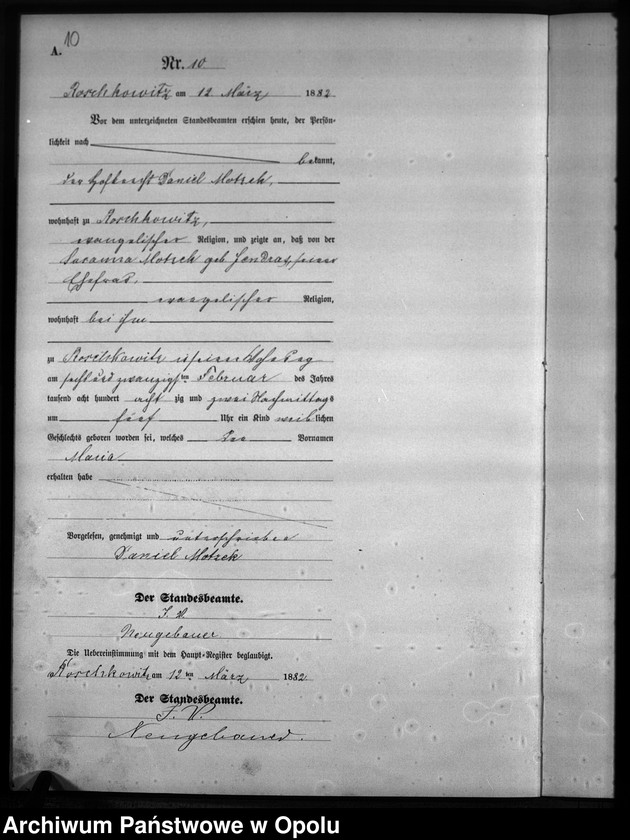 A. 10
Nr. 10
Roschkowitz am 12 März 1882
Vor dem unterzeichneten Standesbeamten erschien heute, der Persön-
lichkeit nach
bekannt,
der Hofknecht Daniel Motzek,
wohnhaft zu Roschkowitz,
evangelischer Religion, und zeigte an, daß von der
Susanna Motzek geb. seiner
Ehefrau,
evangelischer Religion,
wohnhaft bei ihm
zu Roschkowitz in seiner Wohnung
am sechs und zwanzigsten Februar des Jahres
tausend acht hundert acht zig und zwei Nachmittags
um fünf Uhr ein Kind weiblichen
Geschlechts geboren worden sei, welches den Vornamen
Maria
erhalten habe
Vorgelesen, genehmigt und unterschrieben
Daniel Motzek
Der Standesbeamte.
I. V.
Neugebauer
Die Uebereinstimmung mit dem Haupt-Register beglaubigt.
Roschkowitz am 12ten März 1882
Der Standesbeamte.
I. V.
Neugebauer.
Archiwum Państwowe w Opolu